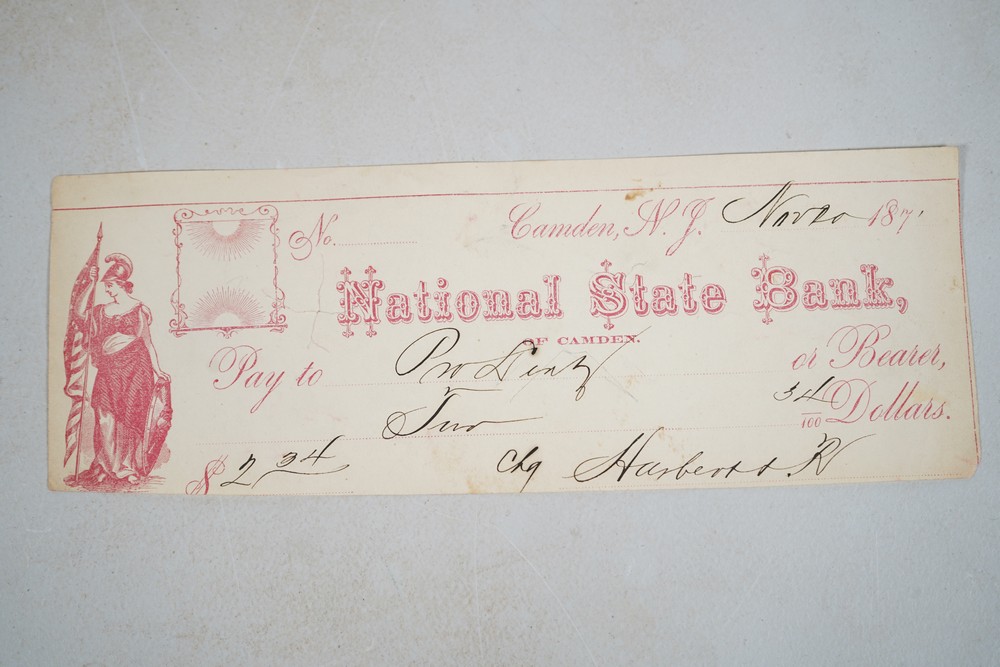 No. Camden, N. J. Nov 20 187
National State Bank,
OF CAMDEN.
Pay to or Bearer,
Two 34/100 Dollars.
$ 2 34 Chg